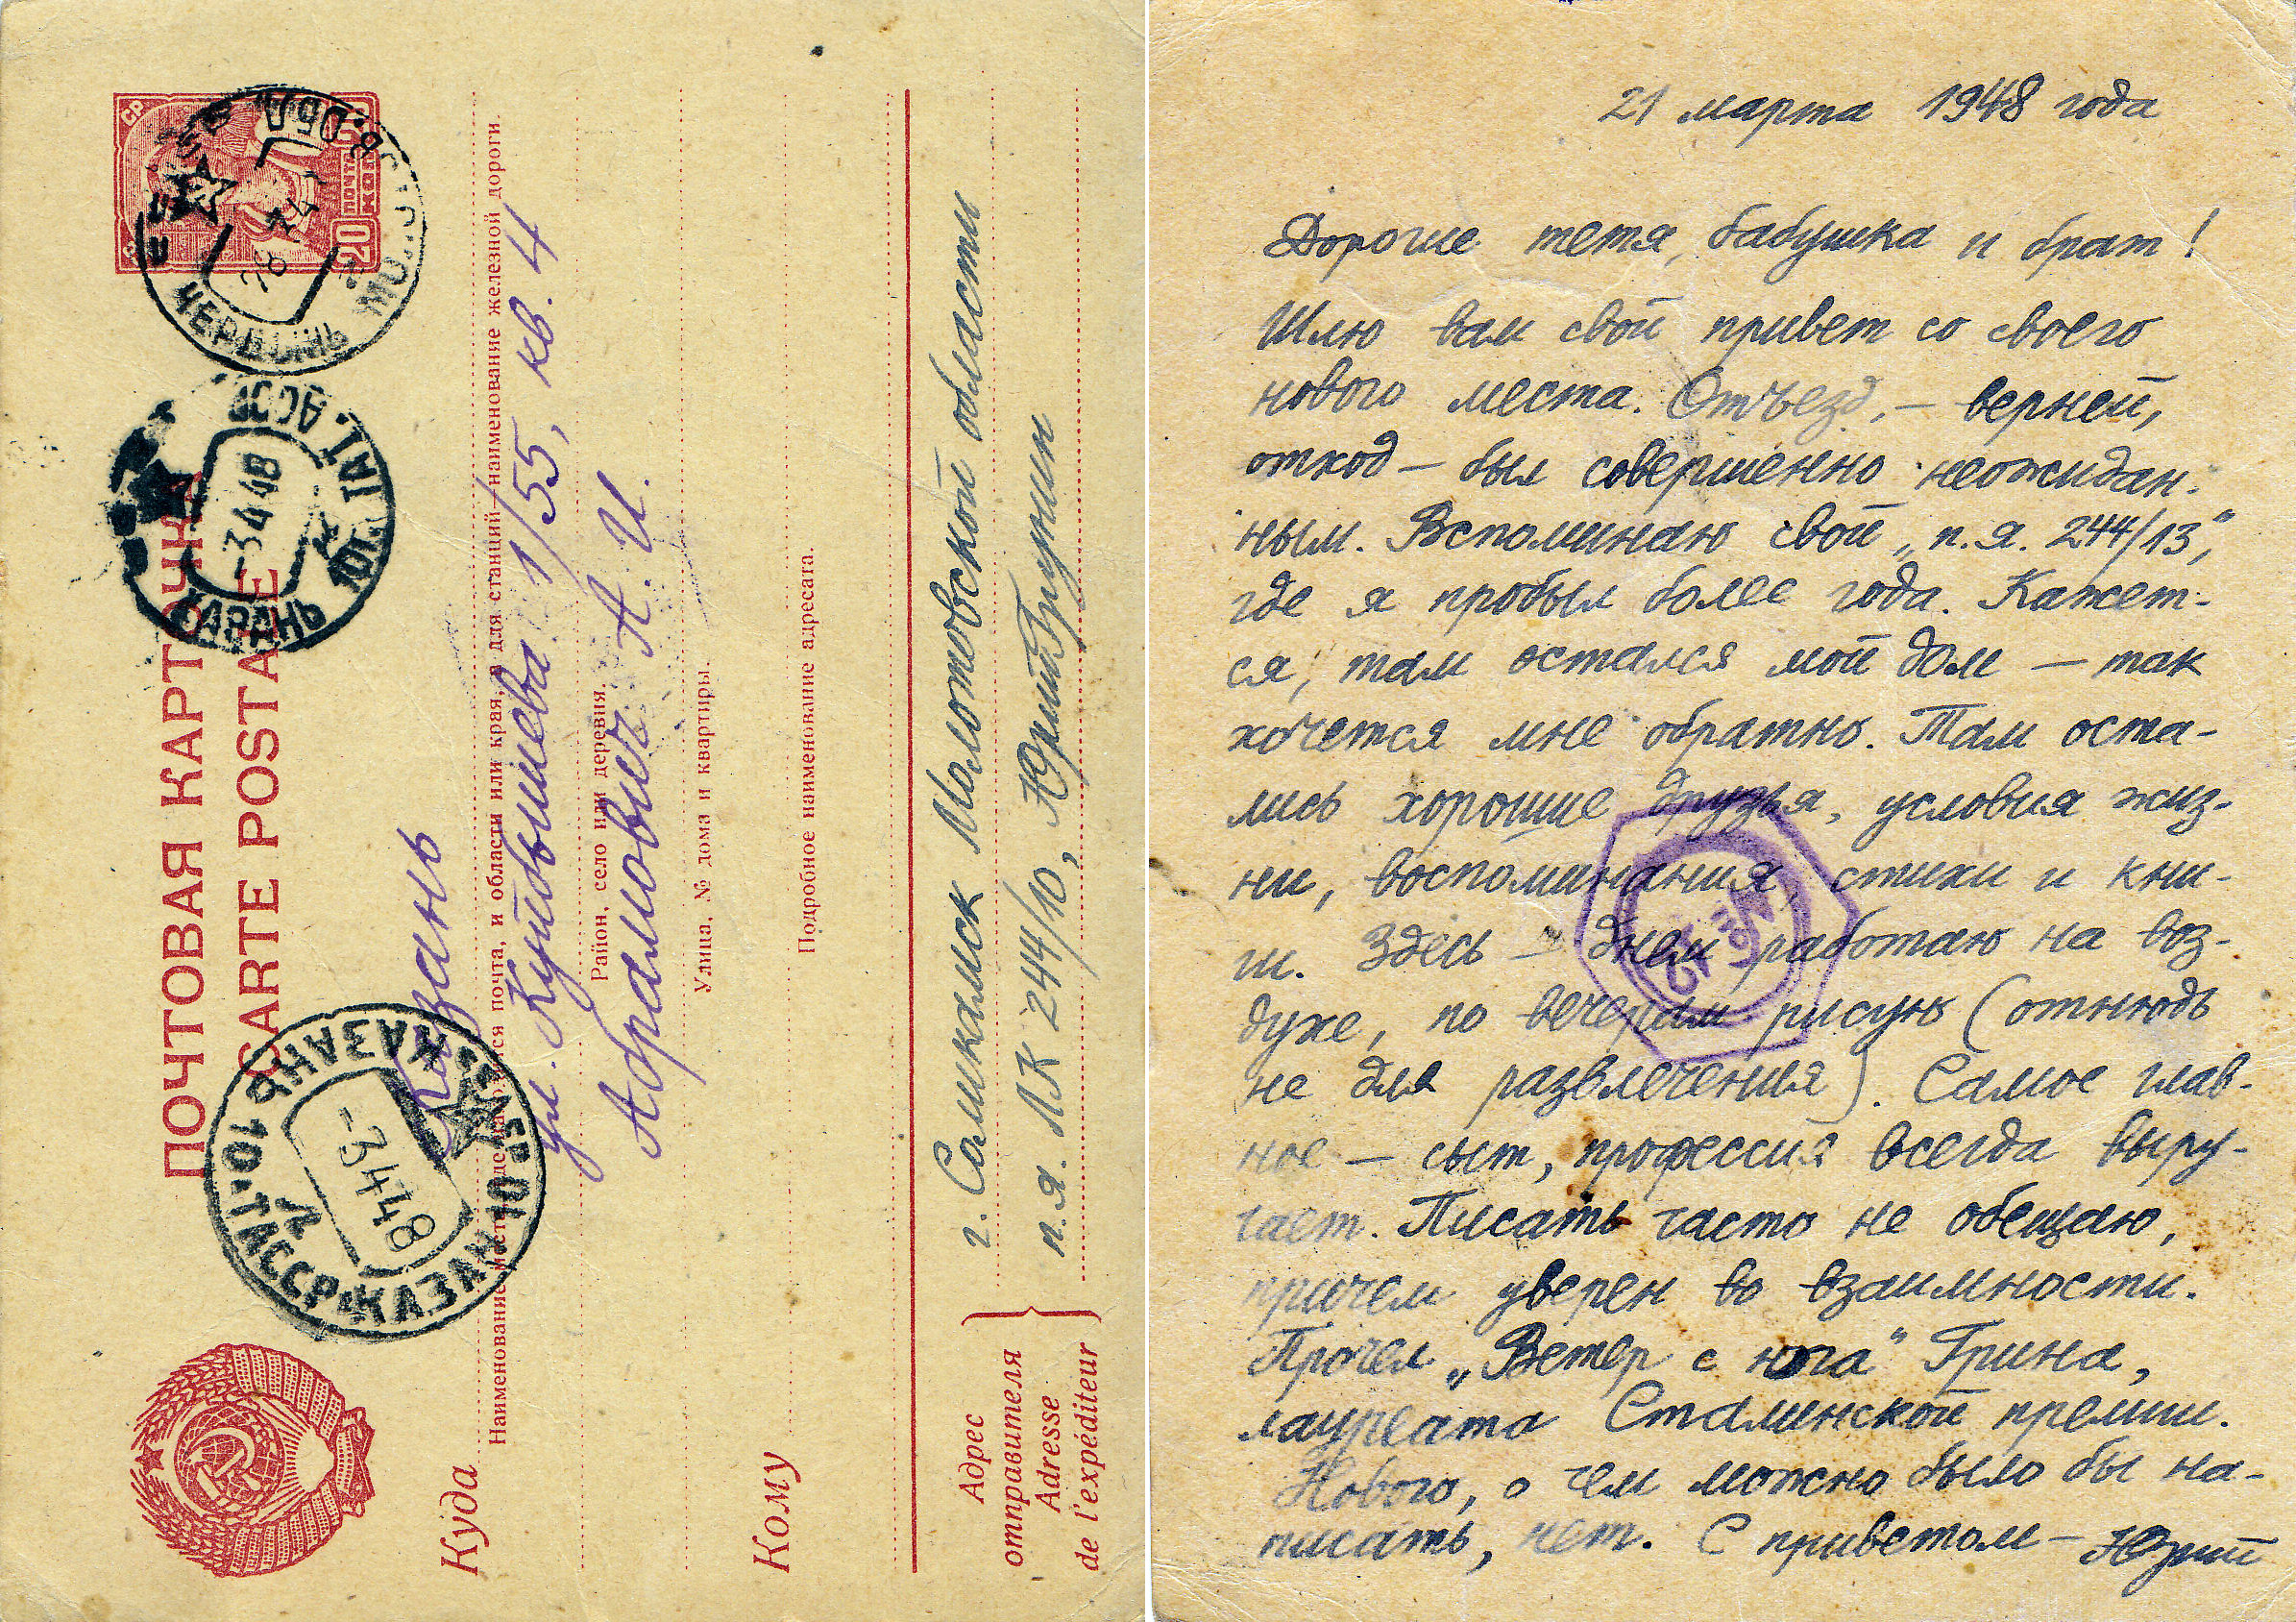 ПОЧТОВАЯ КАРТОЧКА
CARTE POSTALE
20
ПОЧТ
КОП
ЧЕРДЫНЬ МОЛОТОВ. ОБЛ.
28
КАЗАНЬ ЮГ. ТАТ. АССР
-3448
КАЗАНЬ 10. ТАССР КАЗАНЬ 10.
-3448
Куда
Казань
Наименование места, где находится почта, и области или края, а для станций—наименование железной дороги
ул. Куйбышева 1/55, кв. 4
Район, село или деревня.
Абрамович А. И.
Улица, № дома и квартиры.
Кому
Подробное наименование адресата.
Адрес
отправителя
Adresse
de l'expéditeur
г. Соликамск Молотовской области
п.я. ЛК 244/10, Юрий
21 марта 1948 года
Дорогие тетя, бабушка и брат!
Шлю вам свой привет со своего
нового места. Отъезд, — верней,
отход — был совершенно неожидан-
ным. Вспоминаю свой „п.я. 244/13",
где я пробыл более года. Кажет-
ся, там остался мой дом — так
хочется мне обратно. Там оста-
лись хорошие друзья, условия жиз-
ни, воспоминания, стихи и кни-
ги. Здесь — днем работаю на воз-
духе, по вечерам рисую (отнюдь
не для развлечения). Самое глав-
ное — сыт, профессия всегда выру-
чает. Писать часто не обещаю,
причем уверен во взаимности.
Прочел „Ветер с юга" Грина,
лауреата Сталинской премии.
Нового, о чем можно было бы на-
писать, нет. С приветом — Юрий